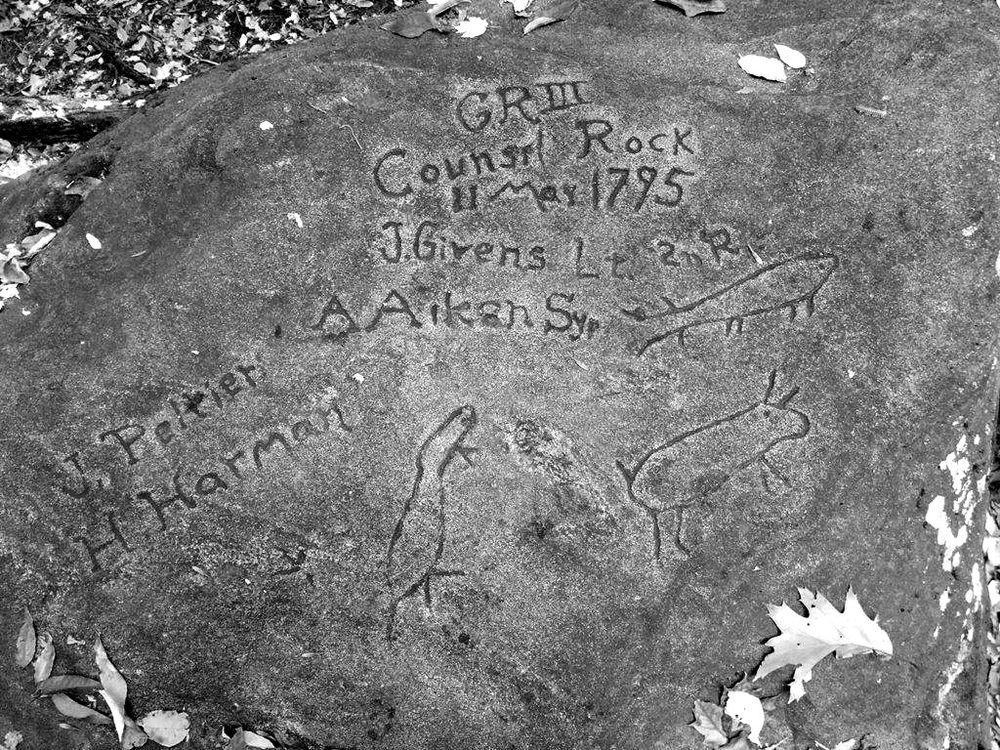 GR III
Counsil Rock
11 May 1795
J. Givens Lt 2n R
A Aiken Syr
J. Peltier
H Harman